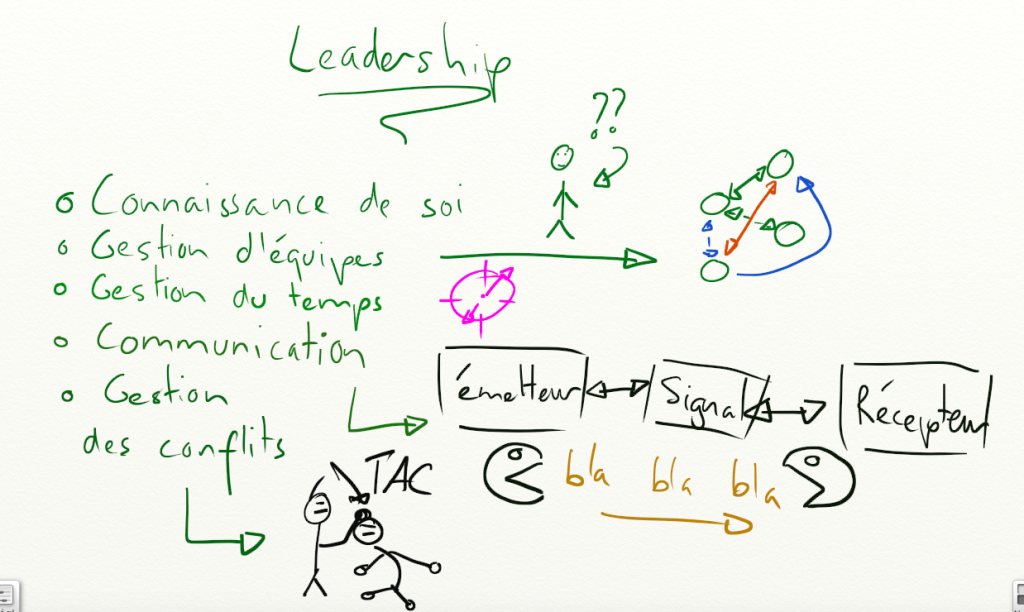 Leadership
??
o Connaissance de soi
o Gestion d'équipes
o Gestion du temps
o Communication
o Gestion
des conflits
émetteur
Signal
Récepteur
bla bla bla
TAC